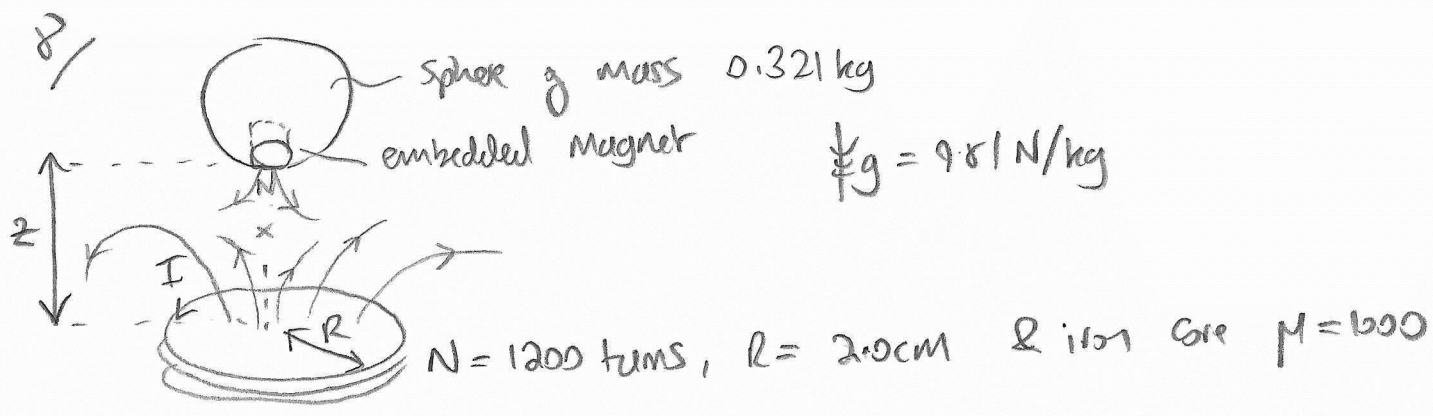 8/
sphere of mass 0.321 kg
embedded magnet
g = 9.81 N/kg
N
z
x
I
R
N = 1200 turns, R = 2.0cm & iron core μ = 1000